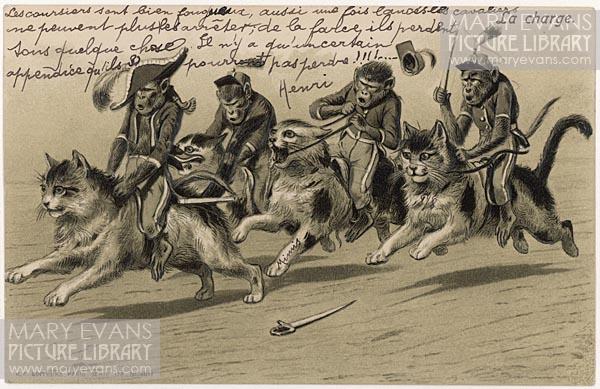 Les coursiers sont bien fougueux, aussi une fois lancés les cavaliers
ne peuvent plus les arrêter, de la farce, ils perdent
tous quelque chose. Il n'y a qu'un certain
appendice qu'ils ne pourront pas perdre !!!!...
Henri
La charge.
Minis
MARY EVANS
PICTURE LIBRARY
www.maryevans.com
MARY EVANS
PICTURE LIBRARY
www.maryevans.com
MARY EVANS
PICTURE LIBRARY
www.maryevans.com